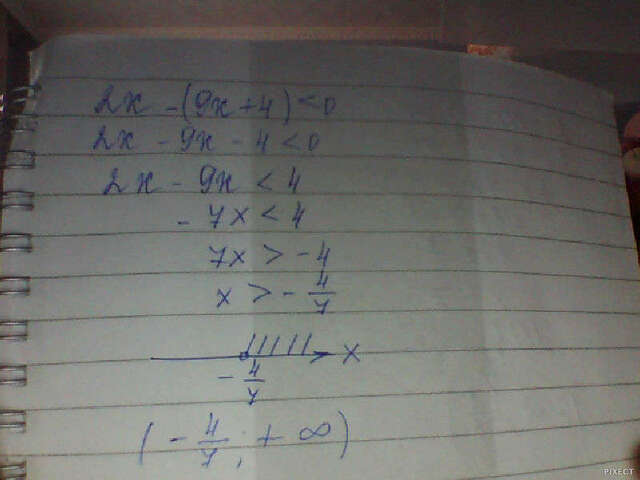 2x - (9x + 4) < 0
2x - 9x - 4 < 0
2x - 9x < 4
- 7x < 4
7x > - 4
x > - 4/7
x
- 4/7
( - 4/7 ; + ∞ )
PIXECT